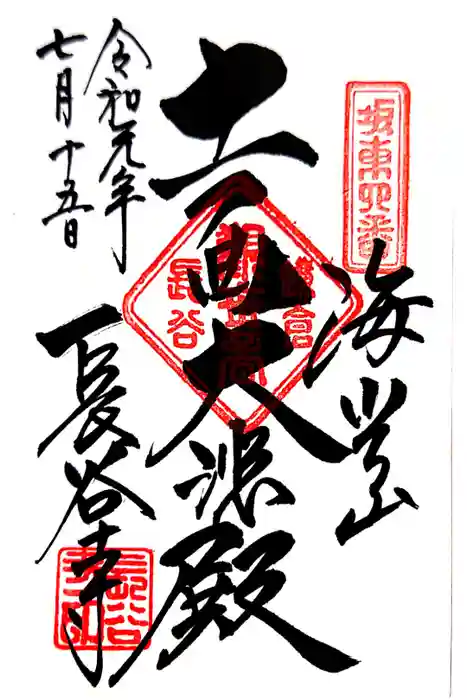 坂東四番
海光山
十一面大悲殿
鎌倉
長谷
長谷寺
令和元年
七月十五日